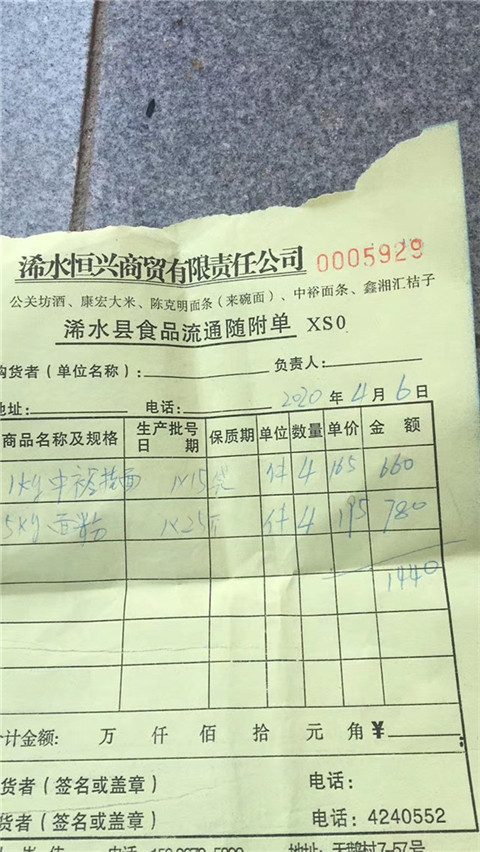 浠水恒兴商贸有限责任公司 0005929
公关坊酒、康宏大米、陈克明面条（来碗面）、中裕面条、鑫湘汇桔子
浠水县食品流通随附单 XS0
购货者（单位名称）： 负责人：
地址： 电话： 2020 年 4 月 6 日
商品名称及规格 生产批号 日期 保质期 单位 数量 单价 金额
1kg中裕挂面 1×15袋 件 4 165 660
5kg面粉 1×25 件 4 195 780
1440
计金额： 万 仟 佰 拾 元 角 ¥
货者（签名或盖章） 电话：
货者（签名或盖章） 电话：4240552
电话 地址：天鹅村7-57号